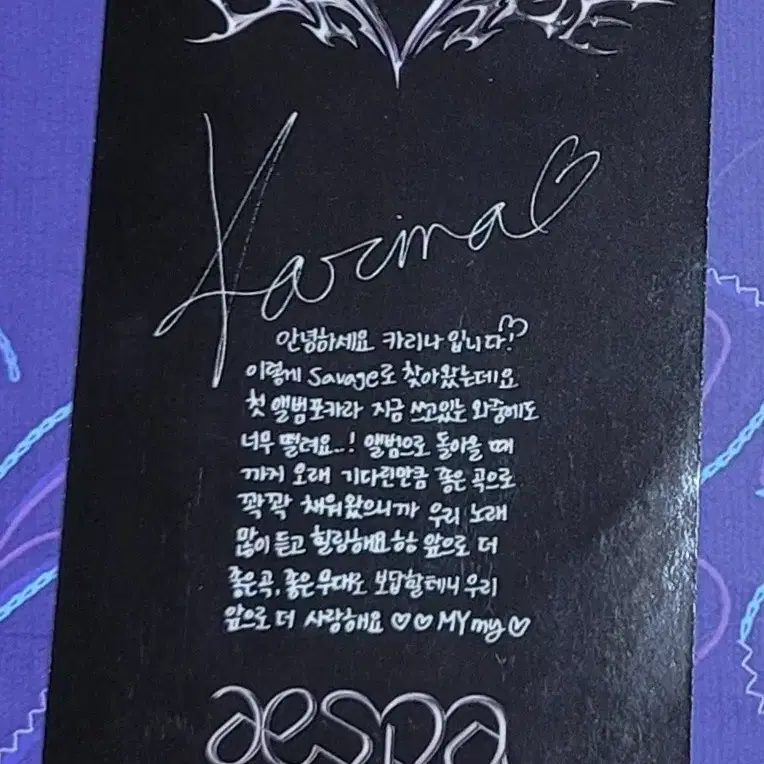 SAVAGE
Karina♡
안녕하세요 카리나입니다!♡
이렇게 Savage로 찾아왔는데요
첫 앨범포카라 지금 쓰고있는 와중에도
너무 떨려요..! 앨범으로 돌아올 때
까지 오래 기다린만큼 좋은 곡으로
꽉꽉 채워왔으니까 우리 노래
많이 듣고 힐링해요ㅎㅎ 앞으로 더
좋은곡, 좋은무대로 보답할테니 우리
앞으로 더 사랑해요 ♡♡ MYmy♡
aespa